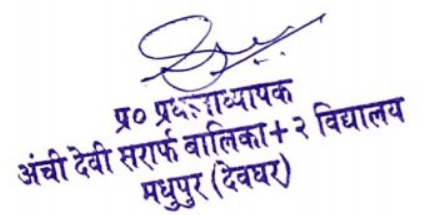 प्र० प्रधानाध्यापक
अंची देवी सर्राफ बालिका + २ विद्यालय
मधुपुर (देवघर)